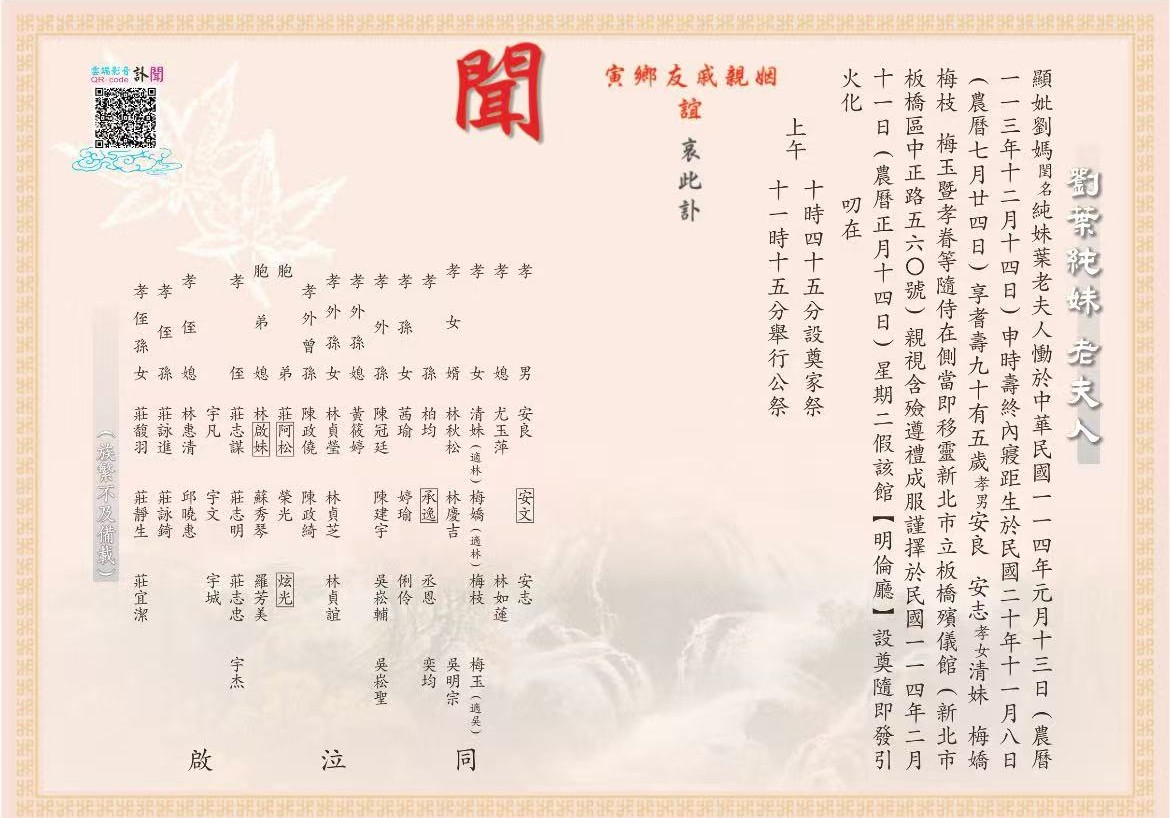 劉葉純妹 老夫人
顯妣劉媽閨名純妹葉老夫人慟於中華民國一一四年元月十三日(農曆
一一三年十二月十四日)申時壽終內寢距生於民國二十年十一月八日
(農曆七月廿四日)享耆壽九十有五歲孝男安良 安志孝女清妹 梅嬌
梅枝 梅玉暨孝眷等隨侍在側當即移靈新北市立板橋殯儀館(新北市
板橋區中正路五六〇號)親視含殮遵禮成服謹擇於民國一一四年二月
十一日(農曆正月十四日)星期二假該館【明倫廳】設奠隨即發引
火化 叨在
十時四十五分設奠家祭
上午
十一時十五分舉行公祭
寅鄉友戚親姻
誼
哀此訃
聞
孝男 安良 安文 安志
孝媳 尤玉萍 林如蓮
孝女 清妹(適林) 梅嬌(適林) 梅枝 梅玉(適吳)
孝女婿 林秋松 林慶吉 吳明宗
孝孫 柏均 承逸 丞恩 奕均
孝孫女 茜瑜 婷瑜 俐伶
孝外孫 陳冠廷 陳建宇 吳崧輔 吳崧聖
孝外孫媳 黃筱婷
孝外孫女 林貞瑩 林貞芝 林貞誼
孝外曾孫 陳政僥 陳政綺
胞弟 莊阿松 榮光 炫光
胞弟媳 林啟妹 蘇秀琴 羅芳美
孝侄 莊志謀 莊志明 莊志忠 宇杰
宇凡 宇文 宇城
孝侄媳 林惠清 邱曉惠
孝侄孫 莊詠進 莊詠錡
孝侄孫女 莊馥羽 莊靜生 莊宜潔
同泣啟
(族繁不及備載)
雲端影音 訃聞
QR- code